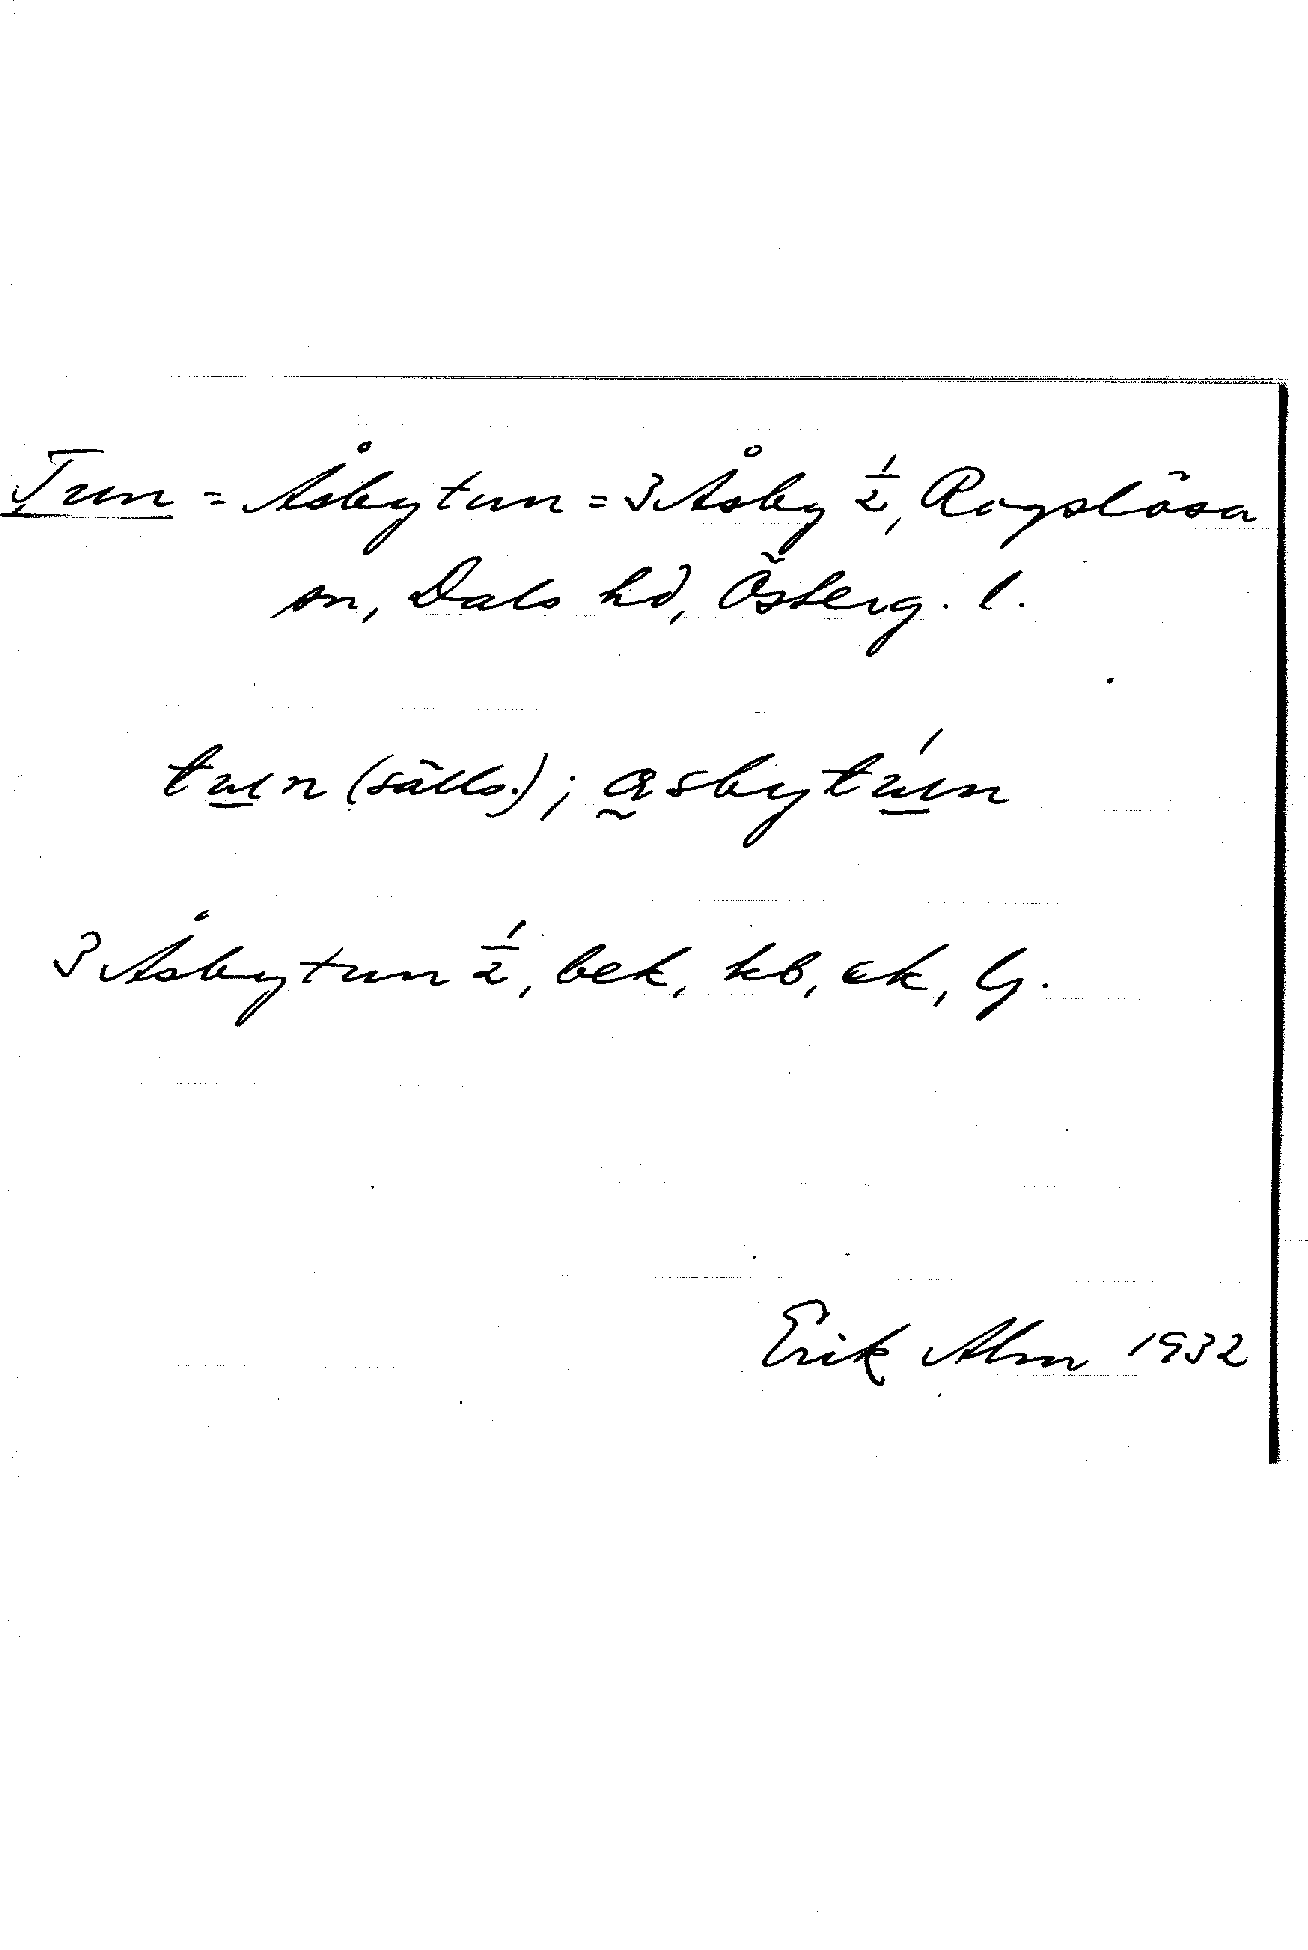 Tun = Åsbytun = 3 Åsby 1/2, Rogslösa
sn, Dals hd, Österg. l.
tun (sälls.); asbytún
3 Åsbytun 1/2, bek, kb, ek, G.
Erik Alm 1932